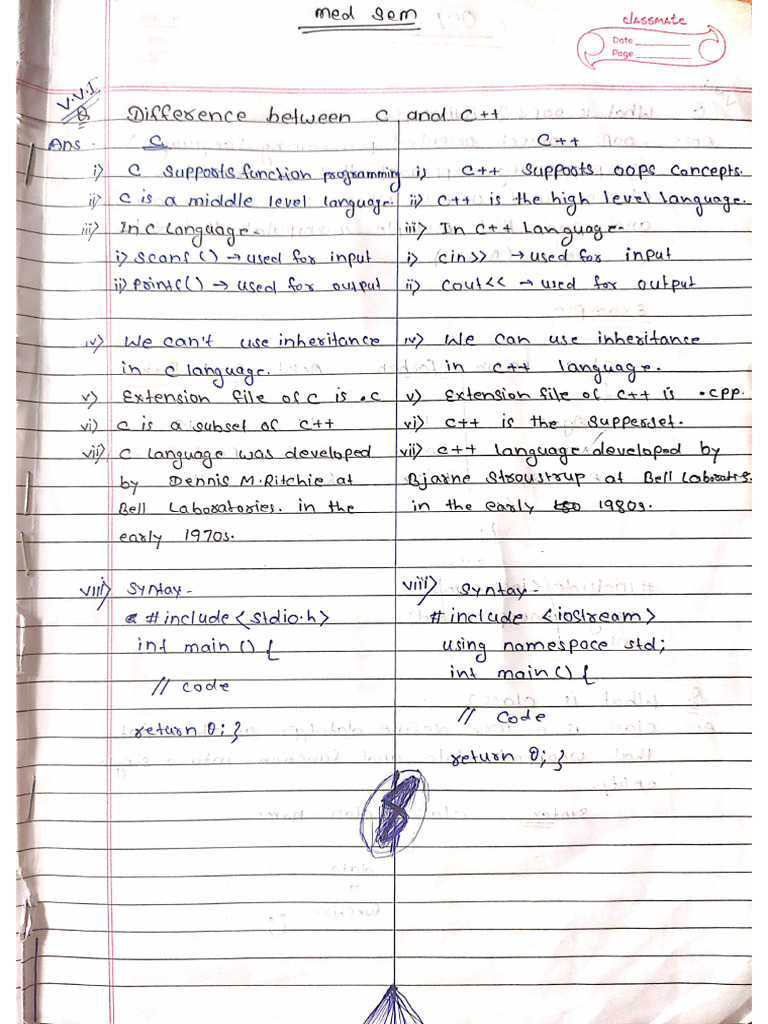 Med Sem
classmate
Date
Page
V.V.I
Q Difference between C and C++
Ans. C
C++
i) C supports function programming
i) C++ supports oops concepts.
ii) C is a middle level language.
ii) C++ is the high level language.
iii) In C language.
iii) In C++ language.
i) scanf() → used for input
i) cin>> → used for input
ii) printf() → used for output
ii) cout<< → used for output
iv) We can't use inheritance
in C language.
iv) We can use inheritance
in C++ language.
v) Extension file of C is .C
v) Extension file of C++ is .cpp.
vi) C is a subset of C++
vi) C++ is the supperset.
vii) C language was developed
by Dennis M.Ritchie at
Bell Laboratories. in the
early 1970s.
vii) C++ language developed by
Bjarne Stroustrup at Bell
in the early 1980s.
viii) Syntax-
# include <stdio.h>
int main () {
// code
return 0; }
viii) Syntax-
# include <iostream>
using namespace std;
int main() {
// code
return 0; }